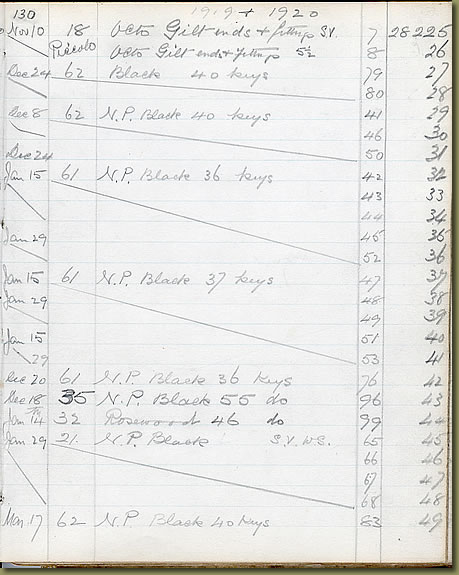 130 1919 + 1920
Nov 10 18 Octo Gilt ends & fittings S.V. 7 28225
Piccolo Octo Gilt ends & fittings 5½ 8 26
Dec 24 62 Black 40 keys 79 27
80 28
Dec 8 62 N.P. Black 40 keys 41 29
46 30
Dec 24 50 31
Jan 15 61 N.P. Black 36 keys 42 32
43 33
44 34
Jan 29 45 35
52 36
Jan 15 61 N.P. Black 37 keys 47 37
Jan 29 48 38
49 39
Jan 15 51 40
29 53 41
Dec 20 61 N.P. Black 36 keys 76 42
Dec 18 35 N.P. Black 55 do 96 43
Jan 14 32 Rosewood 46 do 99 44
Jan 29 21 N.P. Black S.V. W.S. 65 45
66 46
67 47
68 48
Mar. 17 62 N.P. Black 40 keys 83 49